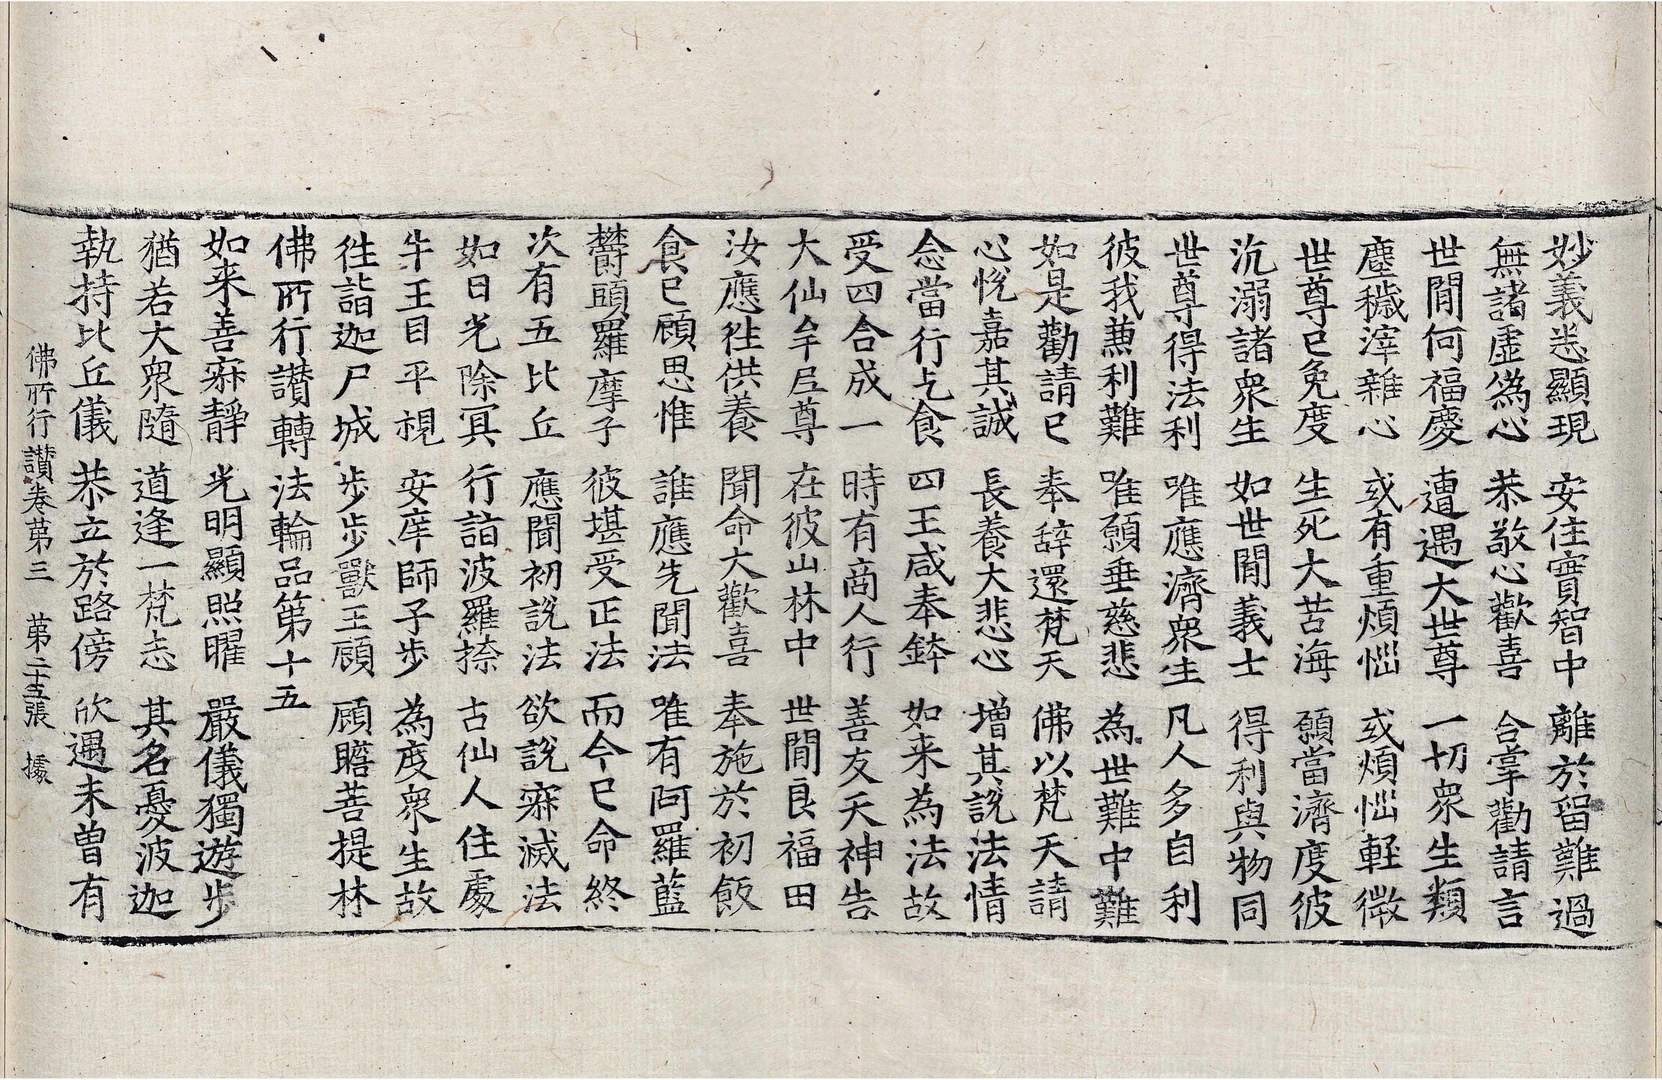 妙義悉顯現 安住實智中 離於留難過
無諸虛僞心 恭敬心歡喜 合掌勸請言
世間何福慶 遭遇大世尊 一切衆生類
塵穢滓雜心 或有重煩惱 或煩惱輕微
世尊已免度 生死大苦海 願當濟度彼
沉溺諸衆生 如世間義士 得利與物同
世尊得法利 唯應濟衆生 凡人多自利
彼我兼利難 唯願垂慈悲 為世難中難
如是勸請已 奉辞還梵天 佛以梵天請
心悅嘉其誠 長養大悲心 增其說法情
念當行乞食 四王咸奉鉢 如来為法故
受四合成一 時有商人行 善友天神告
大仙牟尼尊 在彼山林中 世間良福田
汝應往供養 聞命大歡喜 奉施於初飯
食已顧思惟 誰應先聞法 唯有阿羅藍
欝頭羅摩子 彼堪受正法 而今已命終
次有五比丘 應聞初說法 欲說寂滅法
如日光除冥 行詣波羅捺 古仙人住處
牛王目平視 安庠師子步 為度衆生故
往詣迦尸城 步步獸王顧 顧瞻菩提林
佛所行讃轉法輪品第十五
如来善寂靜 光明顯照曜 嚴儀獨遊步
猶若大衆隨 道逢一梵志 其名憂波迦
執持比丘儀 恭立於路傍 欣遇未曽有
佛所行讃卷第三 第二十五張 據